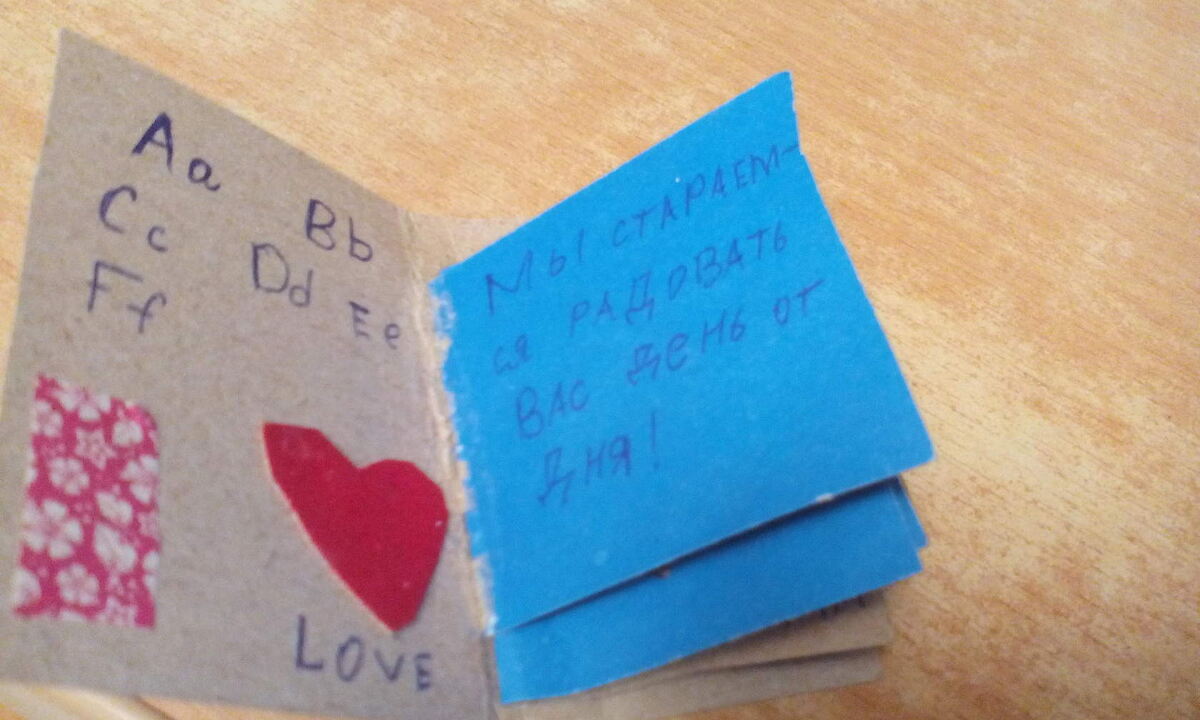 Aa
Bb
Cc
Dd
Ff
Ee
LOVE
МЫ СТАРАЕМ-
СЯ РАДОВАТЬ
ВАС ДЕНЬ ОТ
ДНЯ!